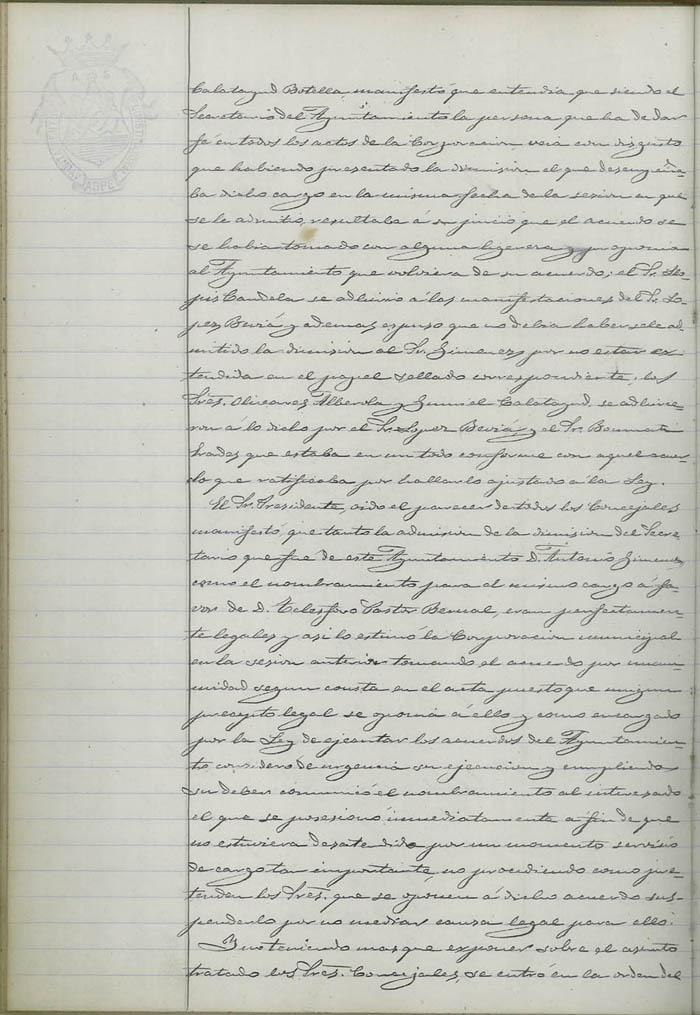 Calatayud Botella, manifestó que entendia que siendo el
Secretario del Ayuntamiento la persona que ha de dar
fé en todos los actos de la Corporacion veia con disgusto
que habiendo presentado la dimision el que desempeña-
ba dicho cargo en la misma fecha de la sesion en que
se le admitio, resultaba á su juicio que el acuerdo se
se habia tomado con alguna ligereza y proponia
al Ayuntamiento que volviera de su acuerdo; el Sr. Llo-
pis Candela se adhirió á las manifestaciones del Sr. Lo-
pez Beviá y ademas espuso que no debia habersele ad-
mitido la dimision al Sr. Gimenez por no estar ex-
tendida en el papel sellado correspondiente. los
Sres. Olivares, Alberola y Calatayud, se adhirie-
ron á lo dicho por el Sr. Lopez Beviá y el Sr.
que estaba en un todo conforme con aquel acuer-
do que ratificaba por hallarlo ajustado á la Ley.
El Sr. Presidente, oido el parecer de todos los Concejales
manifestó, que tanto la admision de la dimision del Secre-
tario que fué de este Ayuntamiento D. Antonio Gimenez
como el nombramiento para el mismo cargo á fa-
vor de D. Telesforo Pastor Bernal, eran perfectamen-
te legales y asi lo estimó la Corporacion municipal
en la sesion anterior tomando el acuerdo por unani-
midad segun consta en el acta puesto que ningun
precepto legal se oponia á ello y como encargado
por la Ley de ejecutar los acuerdos del Ayuntamien-
to consideró de urgencia su ejecucion y cumpliendo
su deber comunicó el nombramiento al interesado
el que se posesionó inmediatamente á fin de que
no estuviera desatendido por un momento servicio
de cargo tan importante, no procediendo como pre-
tenden los Sres. que se oponen á dicho acuerdo sus-
penderlo por no mediar causa legal para ello.
Y no teniendo mas que exponer sobre el asunto
tratado los Sres. Concejales, se entró en la orden del